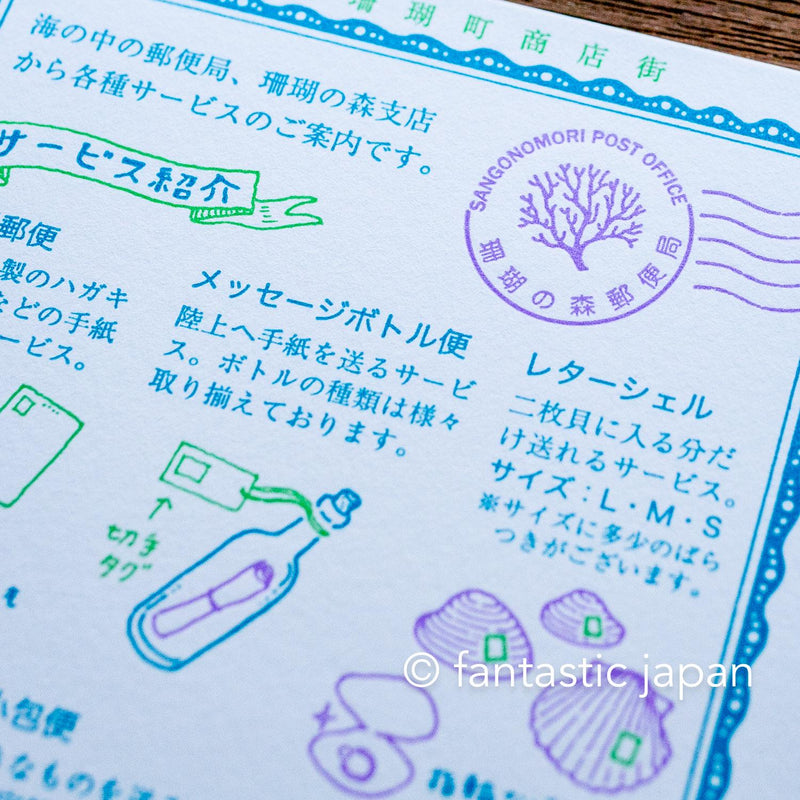 珊瑚町商店街
海の中の郵便局、珊瑚の森支店
から各種サービスのご案内です。
サービス紹介
SANGONOMORI POST OFFICE
珊瑚の森郵便局
郵便
製のハガキ
などの手紙
ービス。
メッセージボトル便
陸上へ手紙を送るサービ
ス。ボトルの種類は様々
取り揃えております。
切手
タグ
レターシェル
二枚貝に入る分だ
け送れるサービス。
サイズ:L・M・S
※サイズに多少のばら
つきがございます。
小包便
© fantastic japan